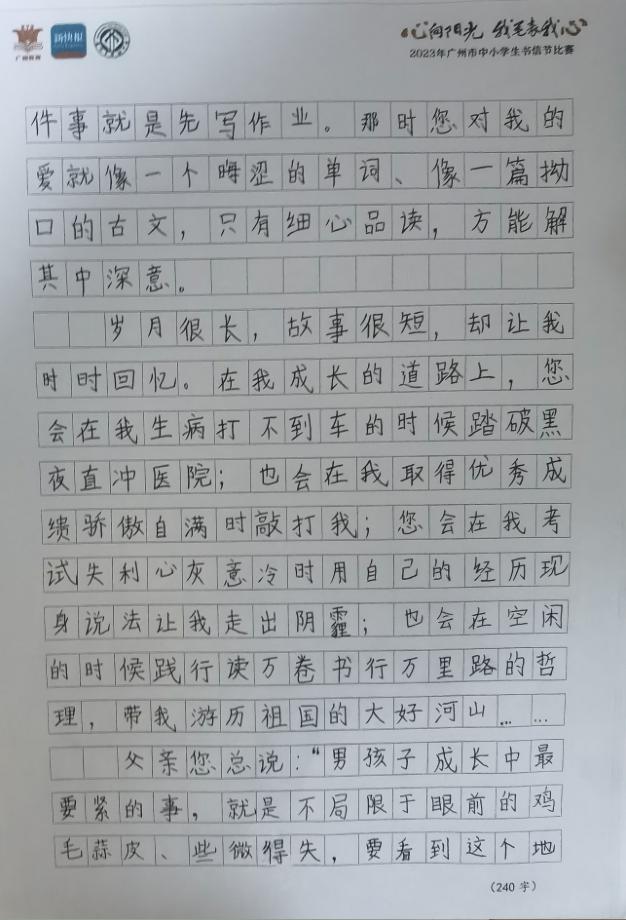 广州教育
新快报
心向阳光 我笔表我心
2023年广州市中小学生书信节比赛
件事就是先写作业。那时您对我的
爱就像一个晦涩的单词、像一篇拗
口的古文，只有细心品读，方能解
其中深意。
岁月很长，故事很短，却让我
时时回忆。在我成长的道路上，您
会在我生病打不到车的时候踏破黑
夜直冲医院；也会在我取得优秀成
绩骄傲自满时敲打我；您会在我考
试失利心灰意冷时用自己的经历现
身说法让我走出阴霾；也会在空闲
的时候践行读万卷书行万里路的哲
理，带我游历祖国的大好河山……
父亲您总说："男孩子成长中最
要紧的事，就是不局限于眼前的鸡
毛蒜皮、些微得失，要看到这个地
（240 字）